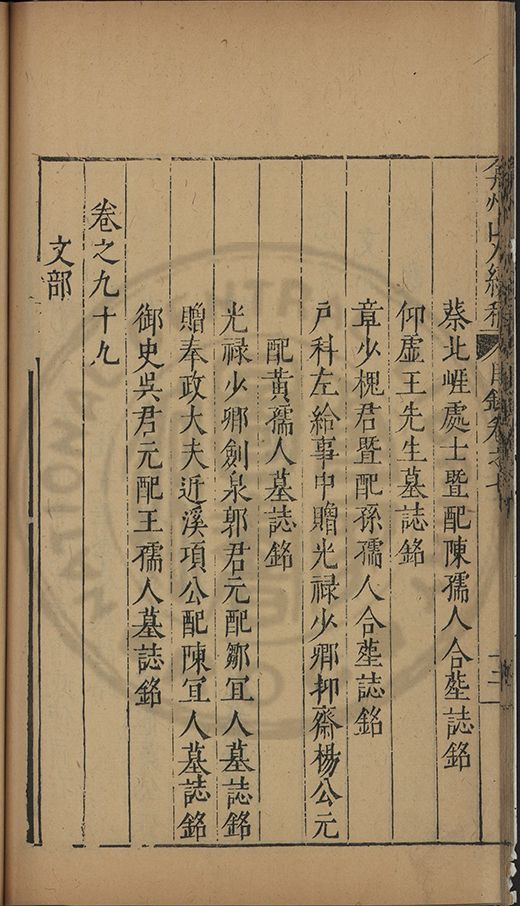 弇州山人續稿 目錄卷之七
十三
蔡北崕處士暨配陳孺人合塟誌銘
仰虛王先生墓誌銘
章少槐君暨配孫孺人合塟誌銘
戶科左給事中贈光祿少卿抑齋楊公元
配黃孺人墓誌銘
光祿少卿劍泉郭君元配鄒宜人墓誌銘
贈奉政大夫近溪項公配陳宜人墓誌銘
御史吳君元配王孺人墓誌銘
卷之九十九
文部